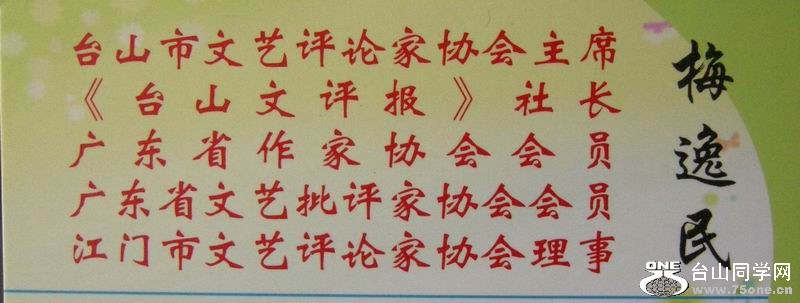 台山市文艺评论家协会主席
《台山文评报》社长
广东省作家协会会员
广东省文艺批评家协会会员
江门市文艺评论家协会理事
梅逸民
ONE 台山同学网
www.75one.cn